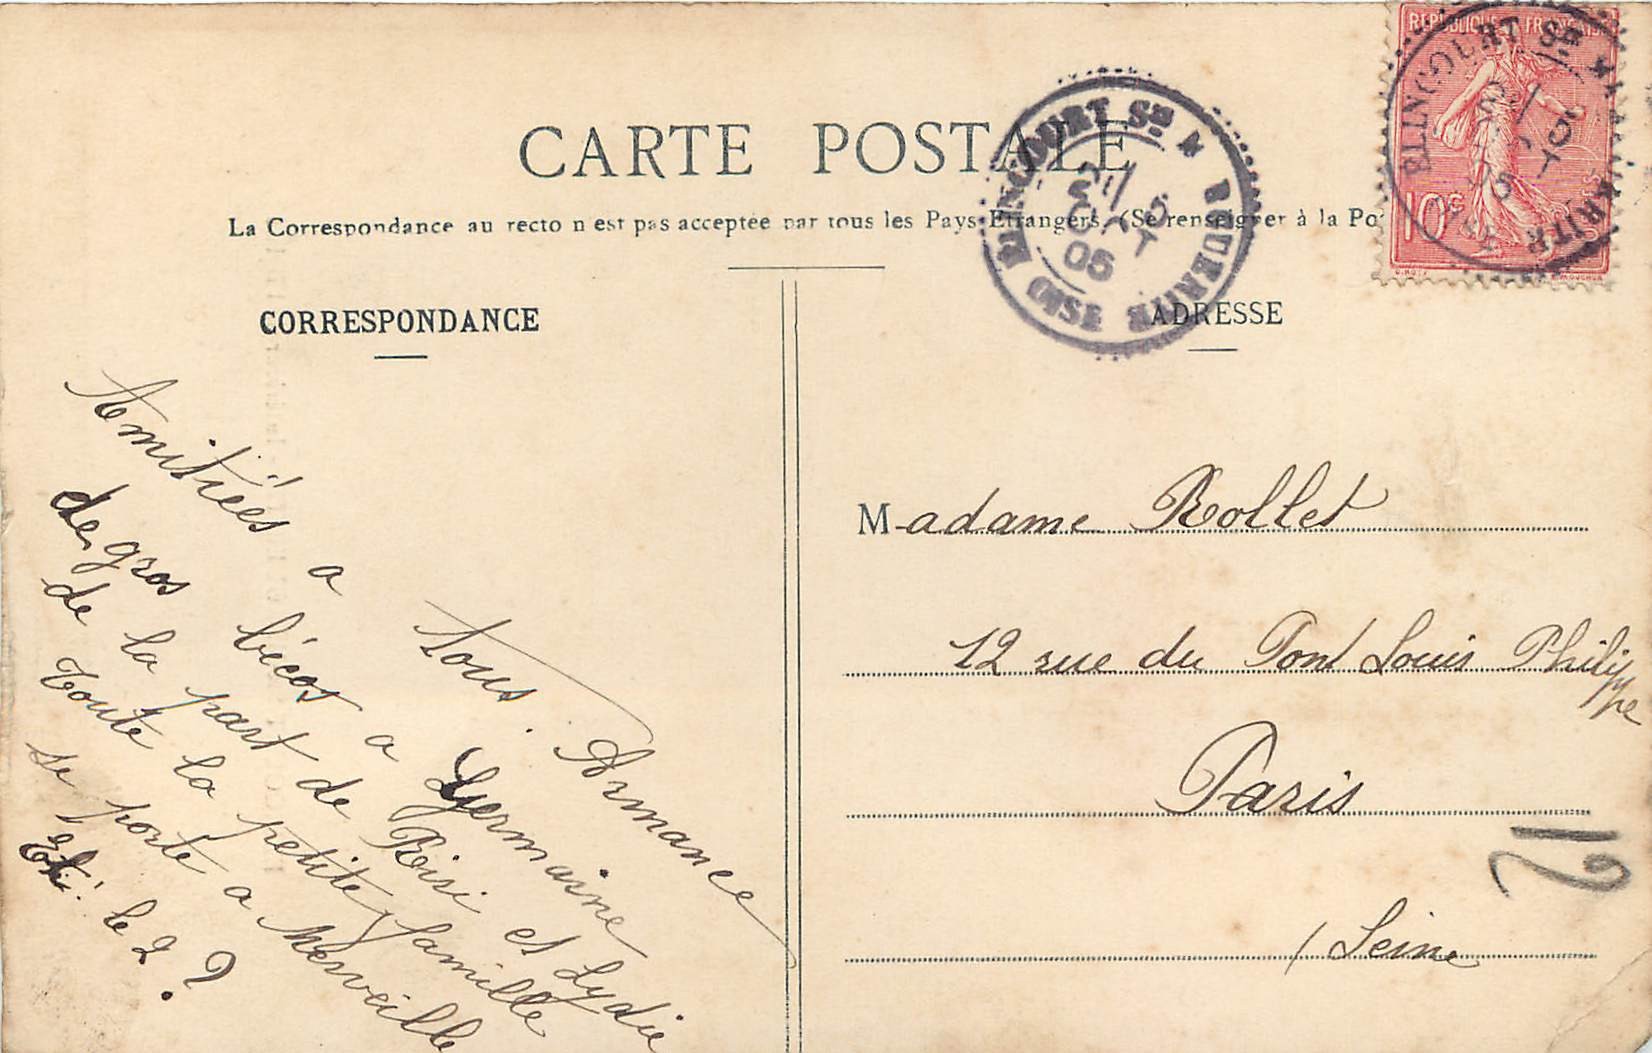 RÉPUBLIQUE FRANÇAISE
10c
CARTE POSTALE
La Correspondance au recto n'est pas acceptée par tous les Pays Etrangers. (Se renseigner à la Po
ELINCOURT Ste MARGUERITE OISE
05
CORRESPONDANCE
Amitiés a tous. Armance
des gros bécos a Germaine
de la part de Risi et Lydie
Toute la petite famille
se porte a Merveille
Et le 2 ?
ADRESSE
Madame Rollet
12 rue du Pont Louis Philippe
Paris
12
(Seine